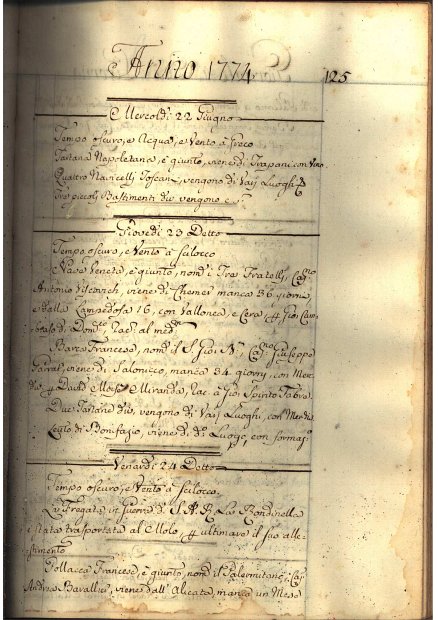 Anno 1774
125
Mercoldi 22 Giugno
Tempo oscuro, e Acqua, e Vento à Greco
Tartana Napoletana, è giunto, viene di Trapani con Vino
Quattro Navicelli Toscani, vengono di Varj Luoghi
Tre piccoli Bastimenti div. vengono
Giovedi 23 Detto
Tempo oscuro, e Vento à Scilocco
Nave Veneta, è giunto, nom. i Tre Fratelli, Cap.no
Antonio viene di manca 36 giorni
e dalla Lampedosa 16, con Vallonea, e Cera Gio:
di Dom.co Rac. al med.mo
Barca Francese, nom. il S. Gio: N., Cap.no Giuseppe
viene di Salonicco, manca 34 giorni, con
David Miranda, Rac. à Gio: Spirito
Due Tartane div. vengono di Varj Luoghi, con
di S. Bonifazio, viene di d.o Luogo, con formag.o
Venardi 24 Detto
Tempo oscuro, e Vento à Scilocco
La Fregata in guerra di S.A.R. La Rondinella
è stata trasportata al Molo, p ultimare il suo alle-
stimento
Pollacca Francese, è giunto, nom. il Palermitano, Cap.
Andrea viene dall' Alicata, manca un Mese